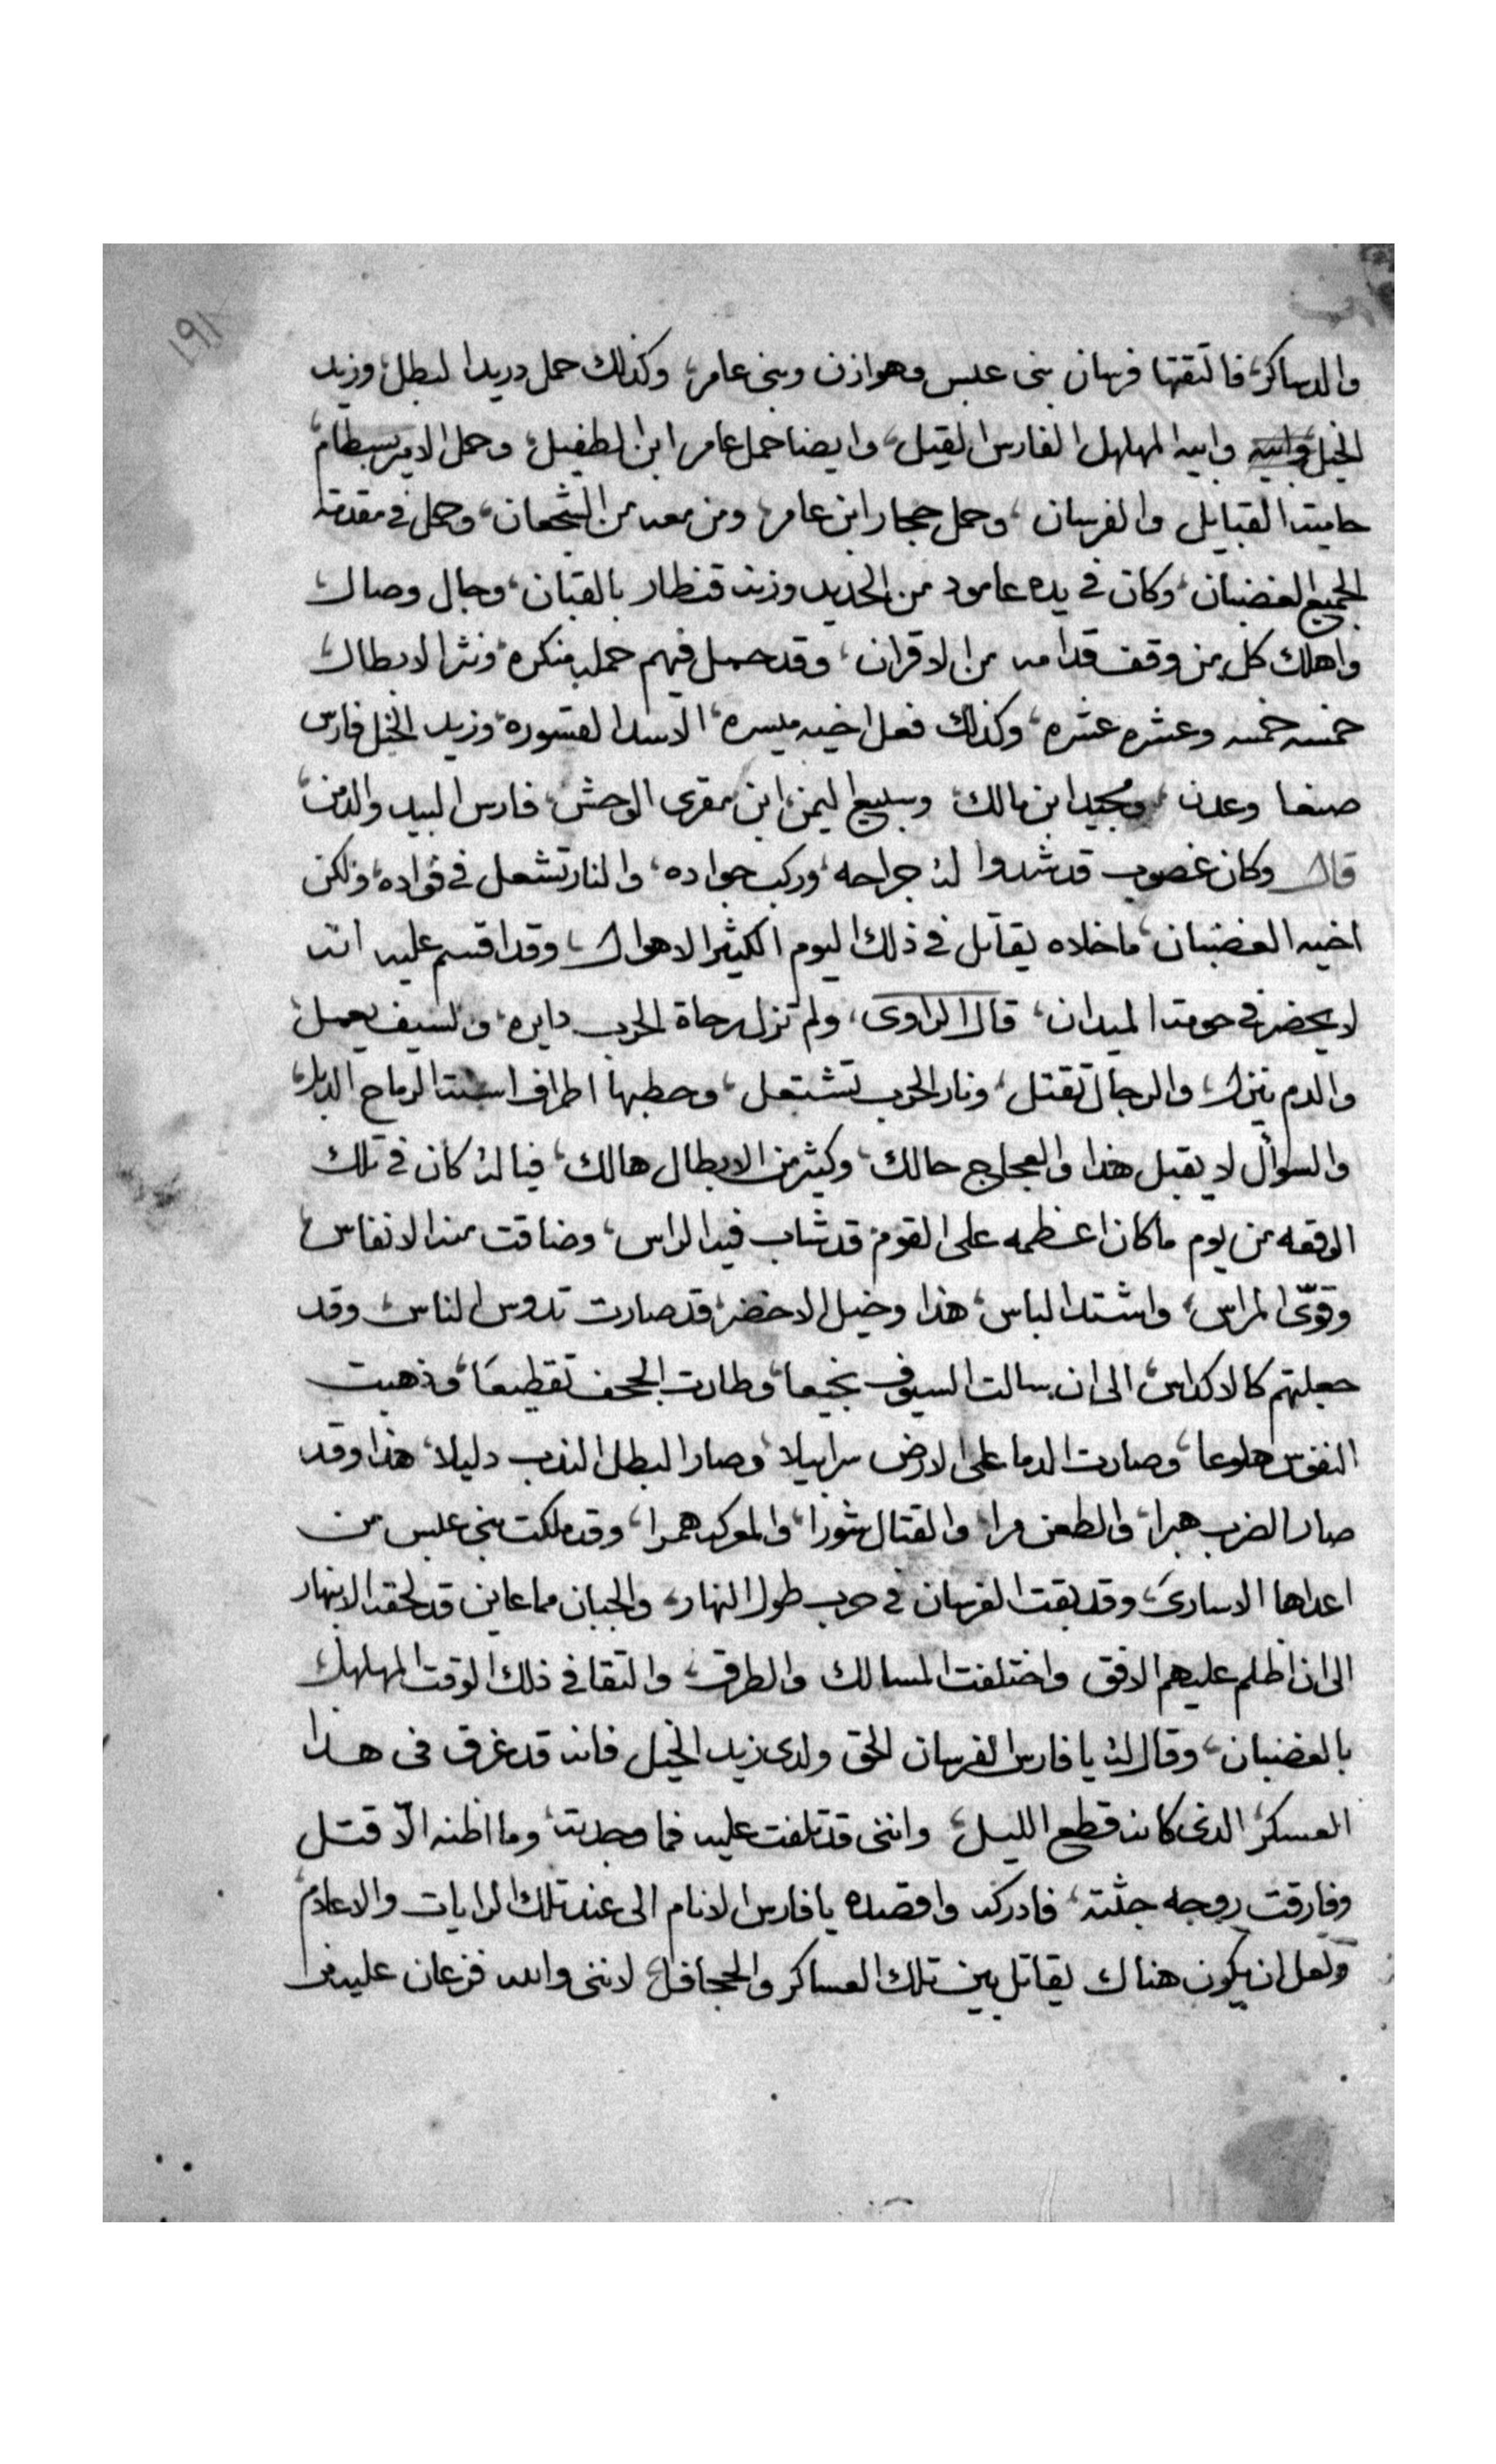 ١٩١
والدساكر، فالتقتها فرسان بنى عبس وهوازن وبنى عامر، وكذلك حمل دريد البطل، وزيد
الخيل وابيه المهلهل الفارس القيل، وايضا حمل عامر ابن الطفيل، وحمل الامير بسطام،
حاميت القبايل والفرسان، وحمل حجار ابن عامر، ومن معه من الشجعان، وحمل فى مقدمة
الجميع الغضبان، وكان فى يده عامود من الحديد وزنه قنطار بالقبان، وجال وصال
واهلك كل من وقف قدامه من الاقران، وقد حمل فيهم حمله منكره، ونثر الابطال
خمسه خمسه وعشره عشره، وكذلك فعل اخيه ميسره، الاسد القسوره، وزيد الخيل فارس
صنعا وعدن، ومجيد ابن مالك، وسبيع اليمن ابن مقرى الوحش، فارس البيد والدمن،
قال وكان غصوب قد شدوا له جراحه، وركب جواده، والنار تشعل فى فواده، ولكن
اخيه الغضبان، ماخلاه يقاتل فى ذلك اليوم الكثير الاهوال، وقد اقسم عليه انه
لا يحضر فى حومة الميدان، قال الراوى، ولم تزل رحاة الحرب دايره، والسيف يعمل،
والدم ينزل، والرجال تقتل، ونار الحرب تشتعل، وحطبها اطراف اسنة الرماح الدبل،
والسوأل لا يقبل هذا والعجاج حالك، وكثير من الابطال هالك، فياله كان فى تلك
الوقعه من يوم ماكان اعظمه على القوم، قد شاب فيه الراس، وضاقت منه الانفاس،
وقوّى المراس، واشتد الباس، هذا وخيل الاخضر، قد صارت تدوس الناس، وقد
جعلتهم كالاكداس، الى ان سالت السيوف نجيعا، وطارت الجحف تقطيعًا، وذهبت
النفوس هلوعا، وصارت الدما على الارض سرابيلا، وصار البطل الندب دليلا، هذا وقد
صار الضرب هبرا، والطعن مرا، والقتال شورا، والموكب همرا، وقد ملكت بنى عبس من
اعداها الاسارى، وقد بقت الفرسان فى حرب طول النهار، والجبان مما عاين قد لحقه الانبهار
الى ان اظلم عليهم الافق واختلفت المسالك والطرق، والتقا فى ذلك الوقت المهلهل
بالغضبان، وقال له يا فارس الفرسان الحق ولدى زيد الخيل فانه قد غرق فى هذا
العسكر، الدى كانه قطع الليل، واننى قد تلفت عليه فما وجدته، وما اظنه الّا قتل
وفارقت روحه جثته، فادركه واقصده يا فارس الانام الى عند تلك الرايات والاعلام،
ولعل ان يكون هناك يقاتل بين تلك العساكر والجحافل، لاننى والله فزعان عليه من